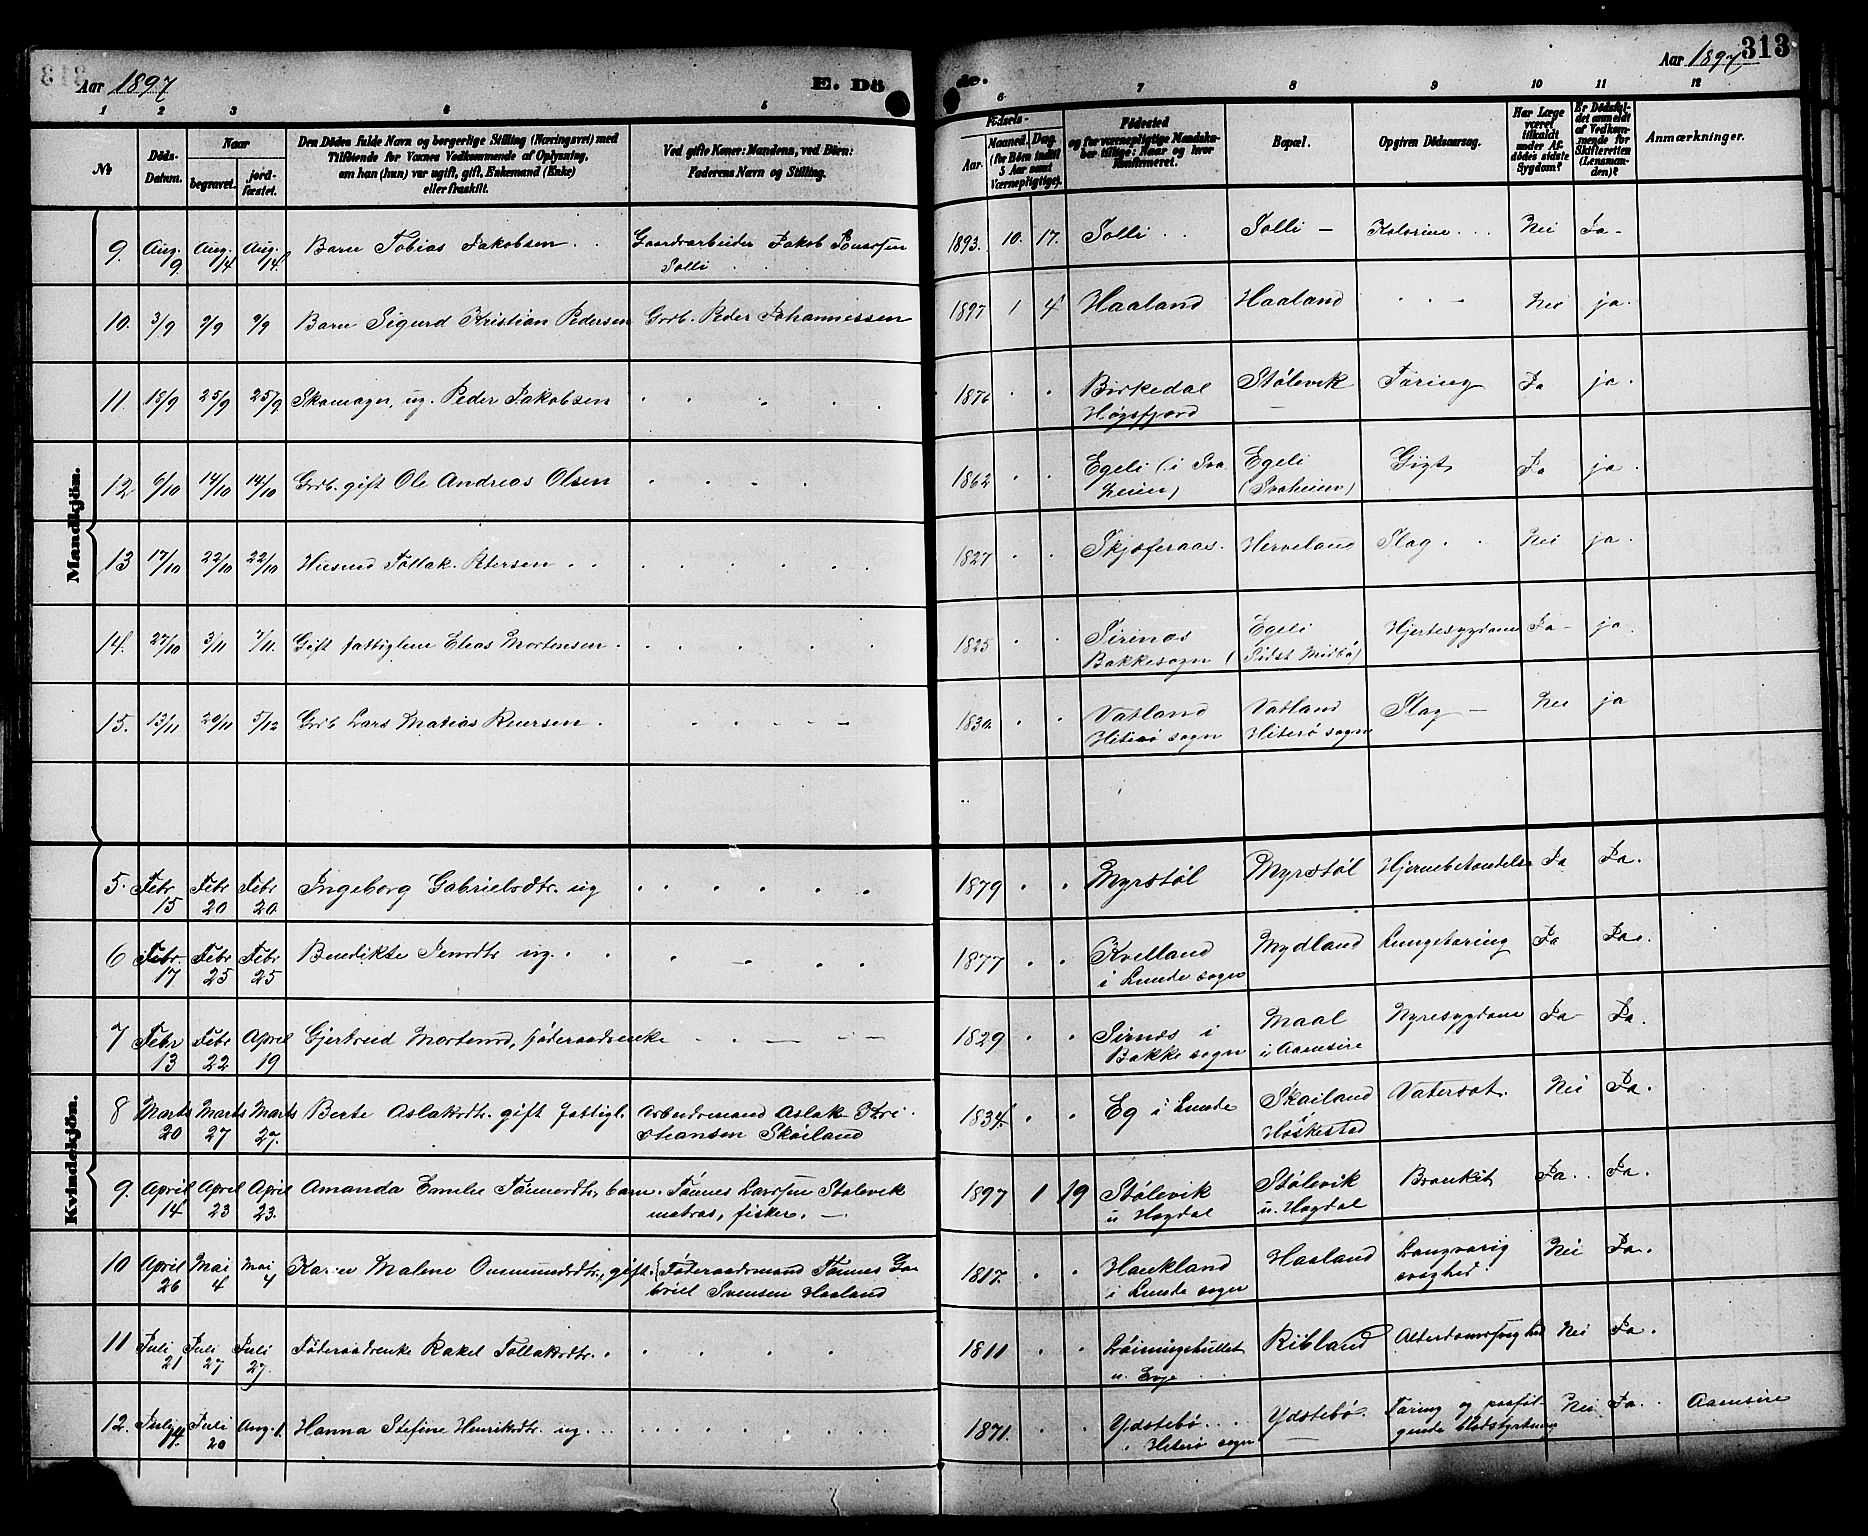 Aar 1897
E. Dö
1 2 3 4 5
№
Döds-Datum.
Naar
begravet.
jord-fæstet.
Den Dödes fulde Navn og borgerlige Stilling (Næringsvei) med
Tilföiende for Voxnes Vedkommende af Oplysning,
om han (hun) var ugift, gift, Enkemand (Enke)
eller fraskilt.
Ved gifte Koner: Mandens, ved Börn:
Faderens Navn og Stilling.
Mandkjön.
9. Aug. 9 Aug. 14 Aug. 14. Barn Tobias Jakobsen Gaardarbeider Jakob
Solli
10. 3/9 9/9 9/9 Barn Sigurd Kristian Pedersen Grb. Peder Johannessen
11. 18/9 25/9 25/9 Skomager, ug. Peder Jakobsen
12 6/10 14/10 14/10 Grb. gift Ole Andreas Olsen
13 17/10 22/10 22/10 Husmd Tollak Petersen
14. 27/10 3/11 7/11. Gift fattiglem Elias Mortensen
15. 13/11 20/11 5/12 Grb Lars Matias Reiersen
Kvindekjön.
5. Febr 15 Febr 20 Febr 20 Ingeborg Gabrielsdtr. ug
6 Febr. 17 Febr 25 Febr 25 Benedikte Jensdtr ug.
7 Febr 13 Febr 22 April 19 Gjertrud Mortensd, föderaadsenke
8 Marts 20 Marts 27 Marts 27. Berte Aslaksdtr. gift fattigl. Arbeidsmand Aslak Kri
stiansen Skailand
9. April 14 April 23 April 23. Amanda Emilie Tönnesdtr, barn. Tönnes Larssen Stølevik
matros, fisker.
10 April 26 Mai 4 Mai 4 Karen Malene Ommundsdtr., gift. Föderaadsmand Tönnes Ga
briel Svensen Haaland
11 Juli 21 Juli 27 Juli 27. Föderaadsenke Rakel Tollaksdtr.
12. Juli 14. Juli 20 Aug. 1. Hanna Stefine Henriksdtr. ug
de.
Aar 1897
313
6 7 8 9 10 11 12
Födsels-
Aar.
Maaned. Dag
(for Börn indtil
5 Aar samt
Værnepligtige).
Födested
og for værnepligtige Mandskaber tillige: Naar og hvor
Konfirmeret.
Bopæl.
Opgiven Dödsaarsag.
Har Læge
været
tilkaldt
under Afdödes sidste
Sygdom?
Er Dödsfaldet anmeldt
af Vedkommende for
Skifteretten
(Lensmanden)?
Anmærkninger.
1893. 10. 17. Solli Solli – Kolerine Nei Ja
1897 1 4 Haaland Haaland Nei ja.
1876 Birkedal Stølevik Tæring Ja ja.
Høgsfjord
1862 Egeli (i Sva Egeli Gigt Ja ja.
heien) (Svaheien)
1827 Skjøferaas. Herveland Slag. Nei ja.
1825 Sirenæs Egeli Hjertesygdom Ja ja.
Bakkesogn (Sidst Midbø)
1830. Vatland Vatland Slag – Nei ja
Hiterø sogn Hiterø sogn
1879 Myrstøl Myrstøl Hjernebetændelse Ja Ja.
1877 Kvelland Mydland Lungetæring Ja Ja.
i Lunde sogn
1829 Sirnæs i Maal Nyresygdom Ja Ja.
Bakke sogn i Aamsire
1834. Eg i Lunde Skailand Vatersot. Nei Ja.
Høskested
1897 1 19 Stølevik Stølevik Bronkit Ja Ja
u. Hogdal u. Hogdal
1817. Haukland Haaland Langvarig Nei Ja.
i Lunde sogn svaghed
1811 Löiningshullet Ribland Alderdomssvaghed Nei Ja.
u. Evje
1871. Ydstebø Ydstebø. Tæring og paaføl- Nei Ja. Aamsire
i Hiterø sogn gende blodstyrtning